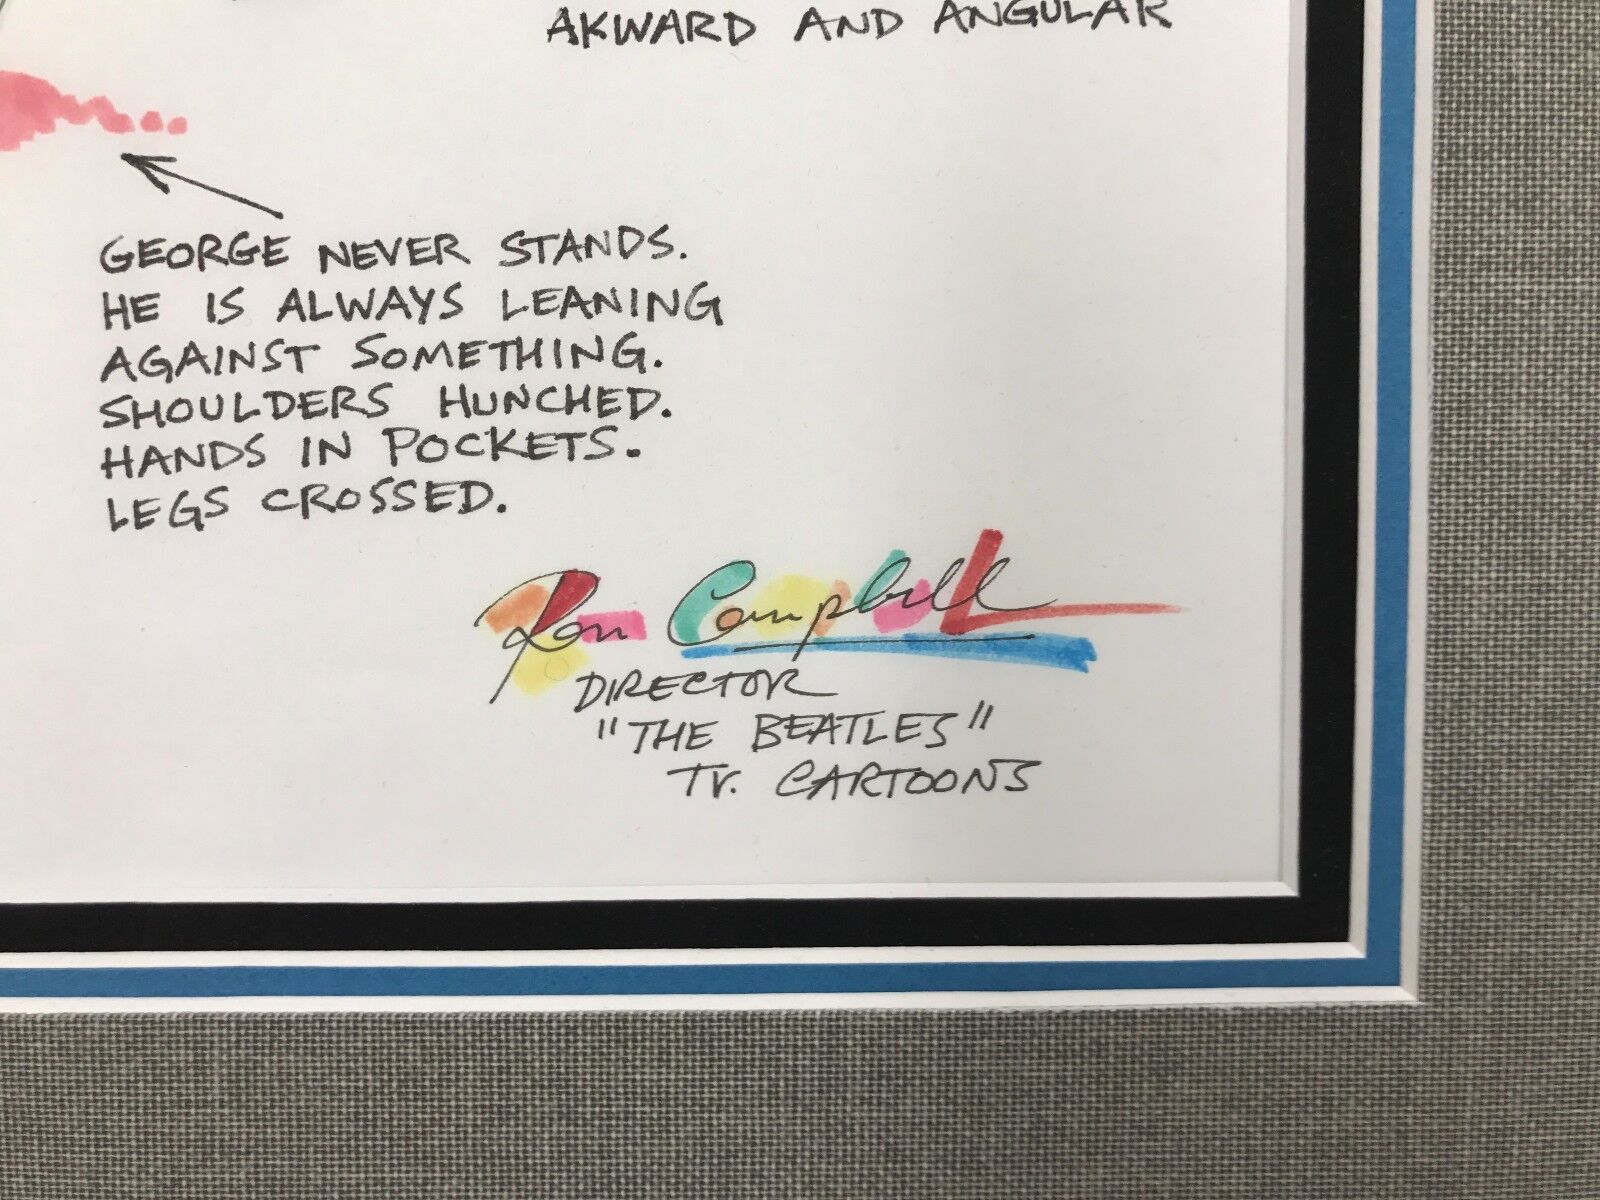 AKWARD AND ANGULAR
GEORGE NEVER STANDS.
HE IS ALWAYS LEANING
AGAINST SOMETHING.
SHOULDERS HUNCHED.
HANDS IN POCKETS.
LEGS CROSSED.
Ron Campbell
DIRECTOR
"THE BEATLES"
TV. CARTOONS